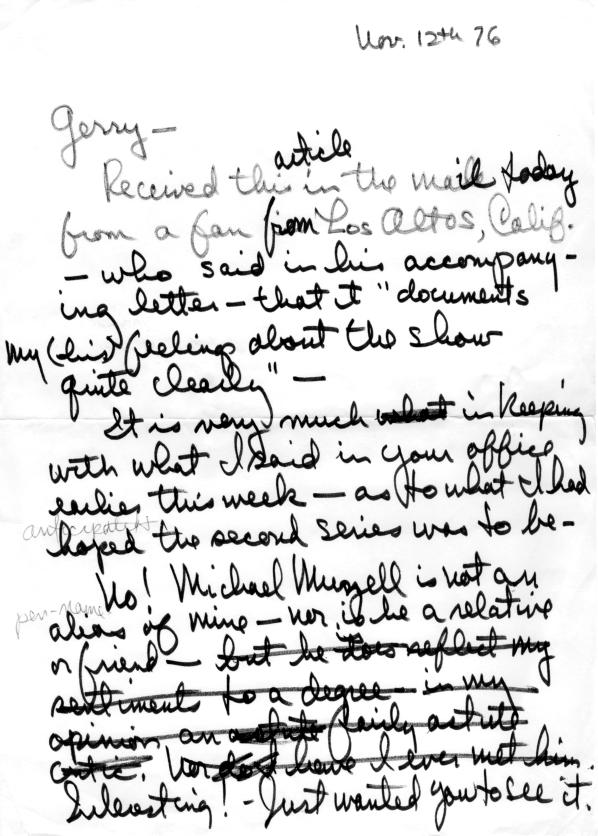 Nov. 12th 76
Gerry —
article
Received this in the mail today
from a fan from Los Altos, Calif.
— who said in his accompany-
ing letter — that it "documents
my (his) feelings about the show
quite clearly" —
It is very much what in keeping
with what I said in your office
earlier this week — as to what I had
anticipated
hoped the second series was to be —
No! Michael Murzell is not an
pen-name
alias of mine — nor is he a relative
or friend — but he does reflect my
sentiments to a degree — in my
opinion an astute fairly astute
critic. Nor do I have I ever met him.
Interesting! - Just wanted you to see it.